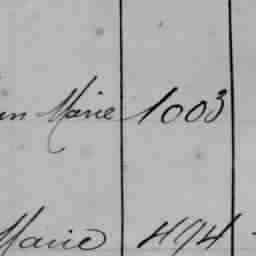 Marie 1003
Marie 494